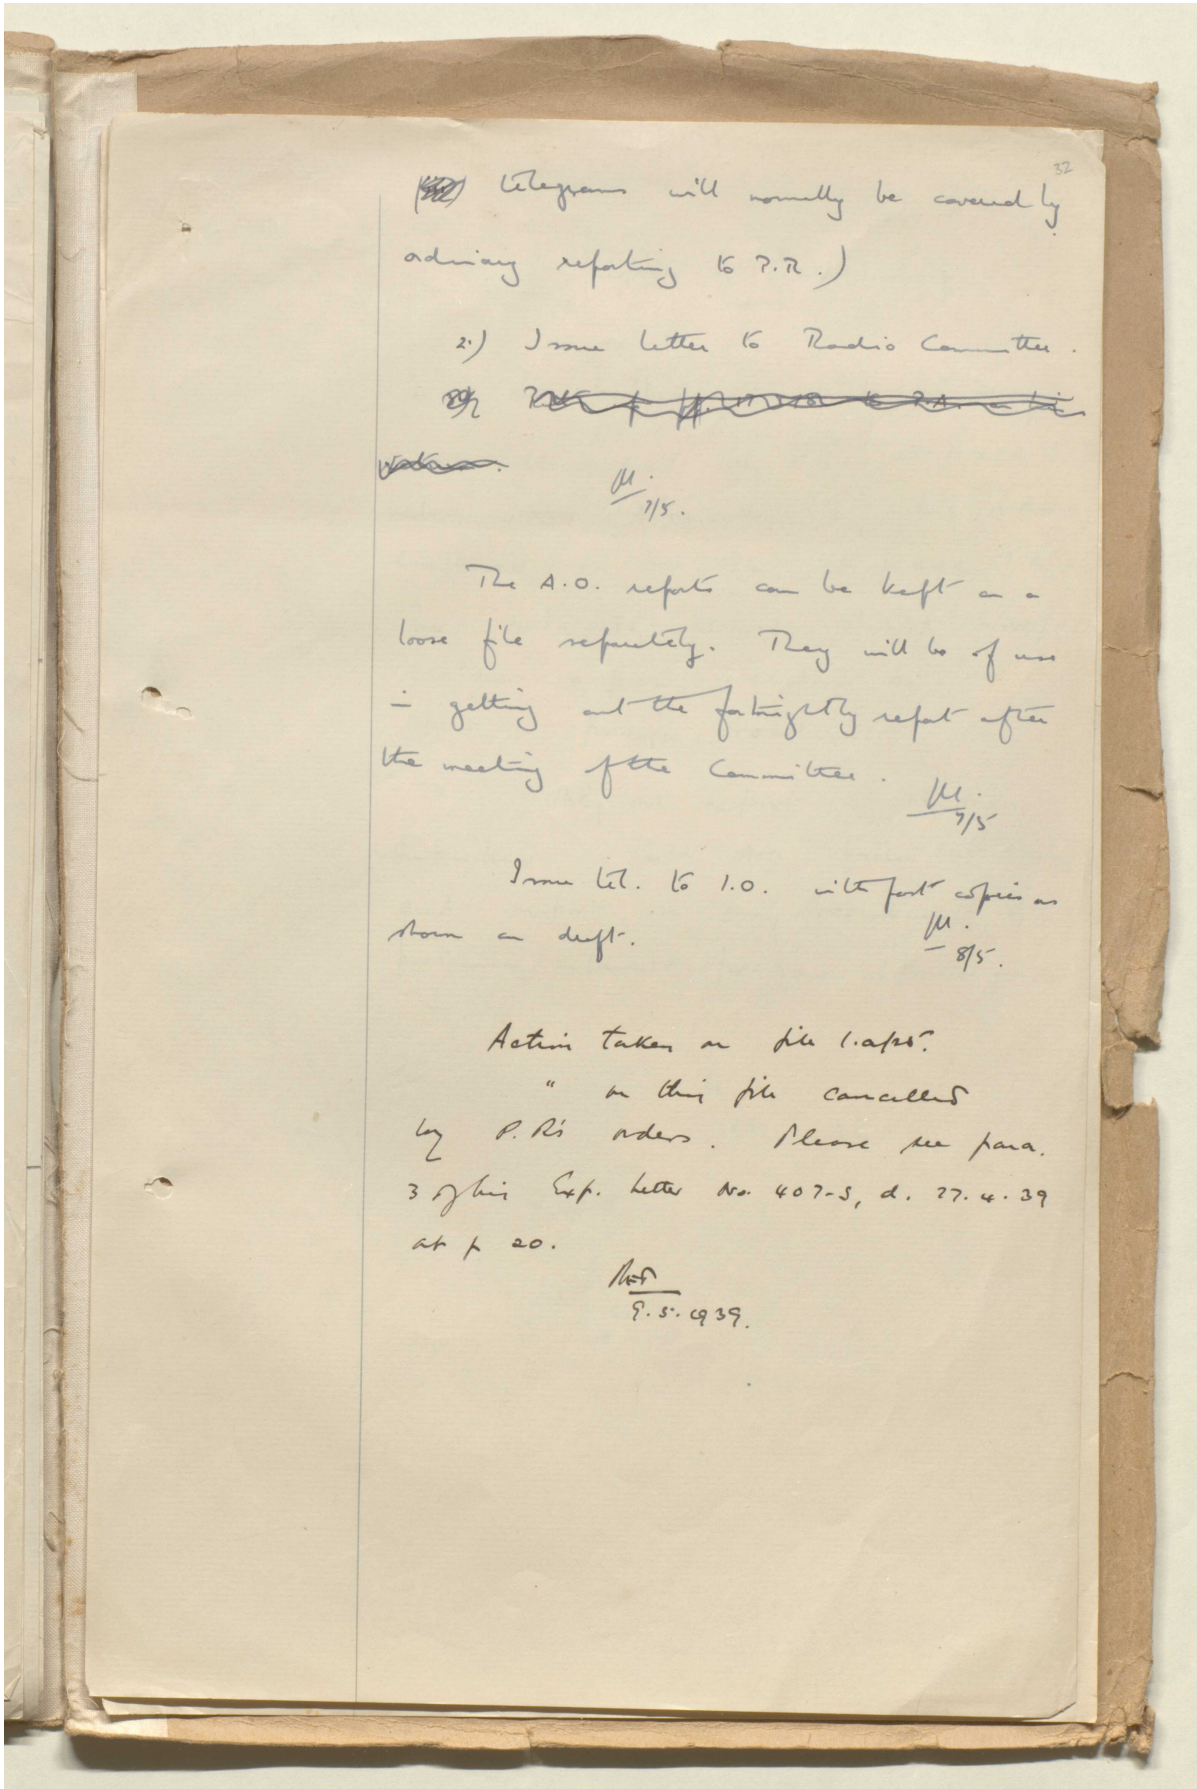 32
telegrams will normally be covered by
ordinary reporting to P.R.)
2.) Issue letter to Radio Committee.
7/5.
The A.O. reports can be kept on a
loose file separately. They will be of use
in getting out the fortnightly report after
the meeting of the Committee.
7/5
Issue tel. to I.O. with post copies as
shown on draft.
8/5.
Action taken on file
" on this file cancelled
by P.R's orders. Please see para.
3 of his Exp. Letter No. 407-S, d. 27.4.39
at p 20.
9.5.1939.